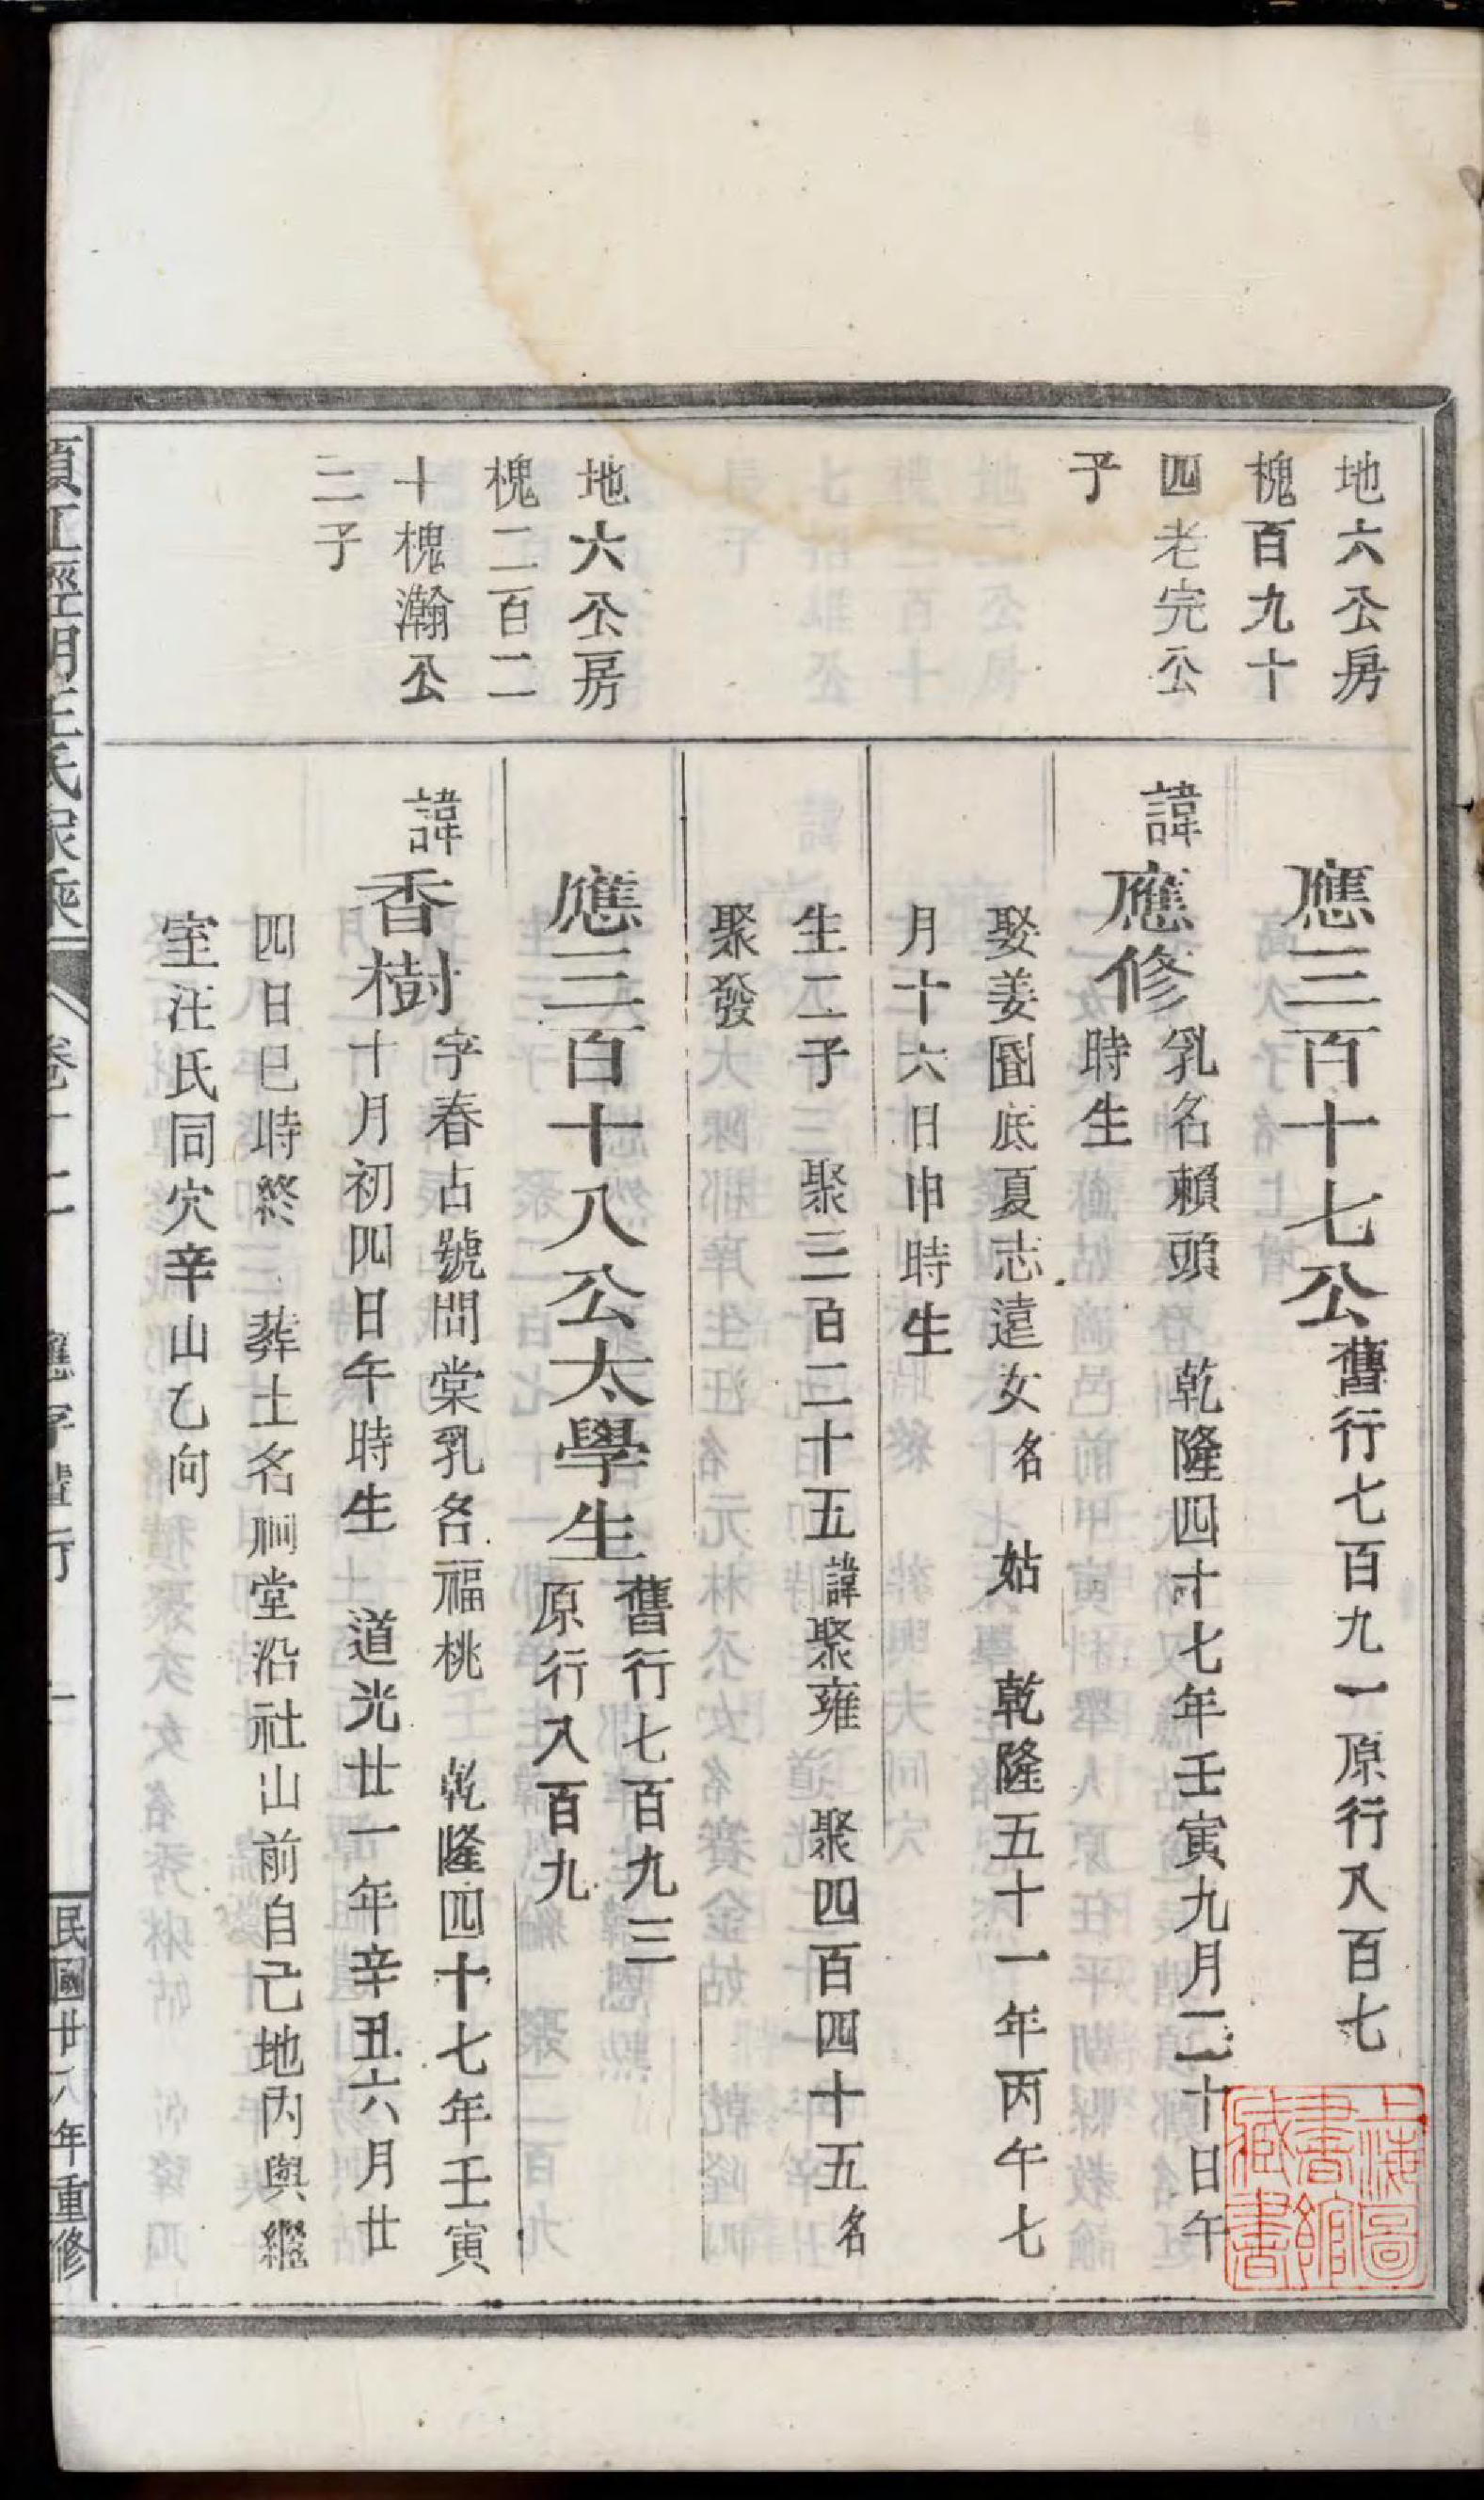 地六公房
槐百九十
四老完公
子
應三百十七公舊行七百九一原行八百七
諱應修乳名賴頭 乾隆四十七年壬寅九月二十日午
時生
娶姜圖底夏志遠女名 姑 乾隆五十一年丙午七
月十六日申時生
生二子 聚三百二十五諱聚雍 聚四百四十五名
聚發
地六公房
槐二百二
十槐瀚公
二子
應三百十八公太學生舊行七百九三
原行八百九
諱香樹字春占號問棠乳名福桃 乾隆四十七年壬寅
十月初四日午時生 道光廿一年辛丑六月廿
四日巳時終 葬土名祠堂沿社山前自己地內與繼
室汪氏同穴辛山乙向
卷十二 應字輩行
民國廿八年重修
上海圖書館藏書